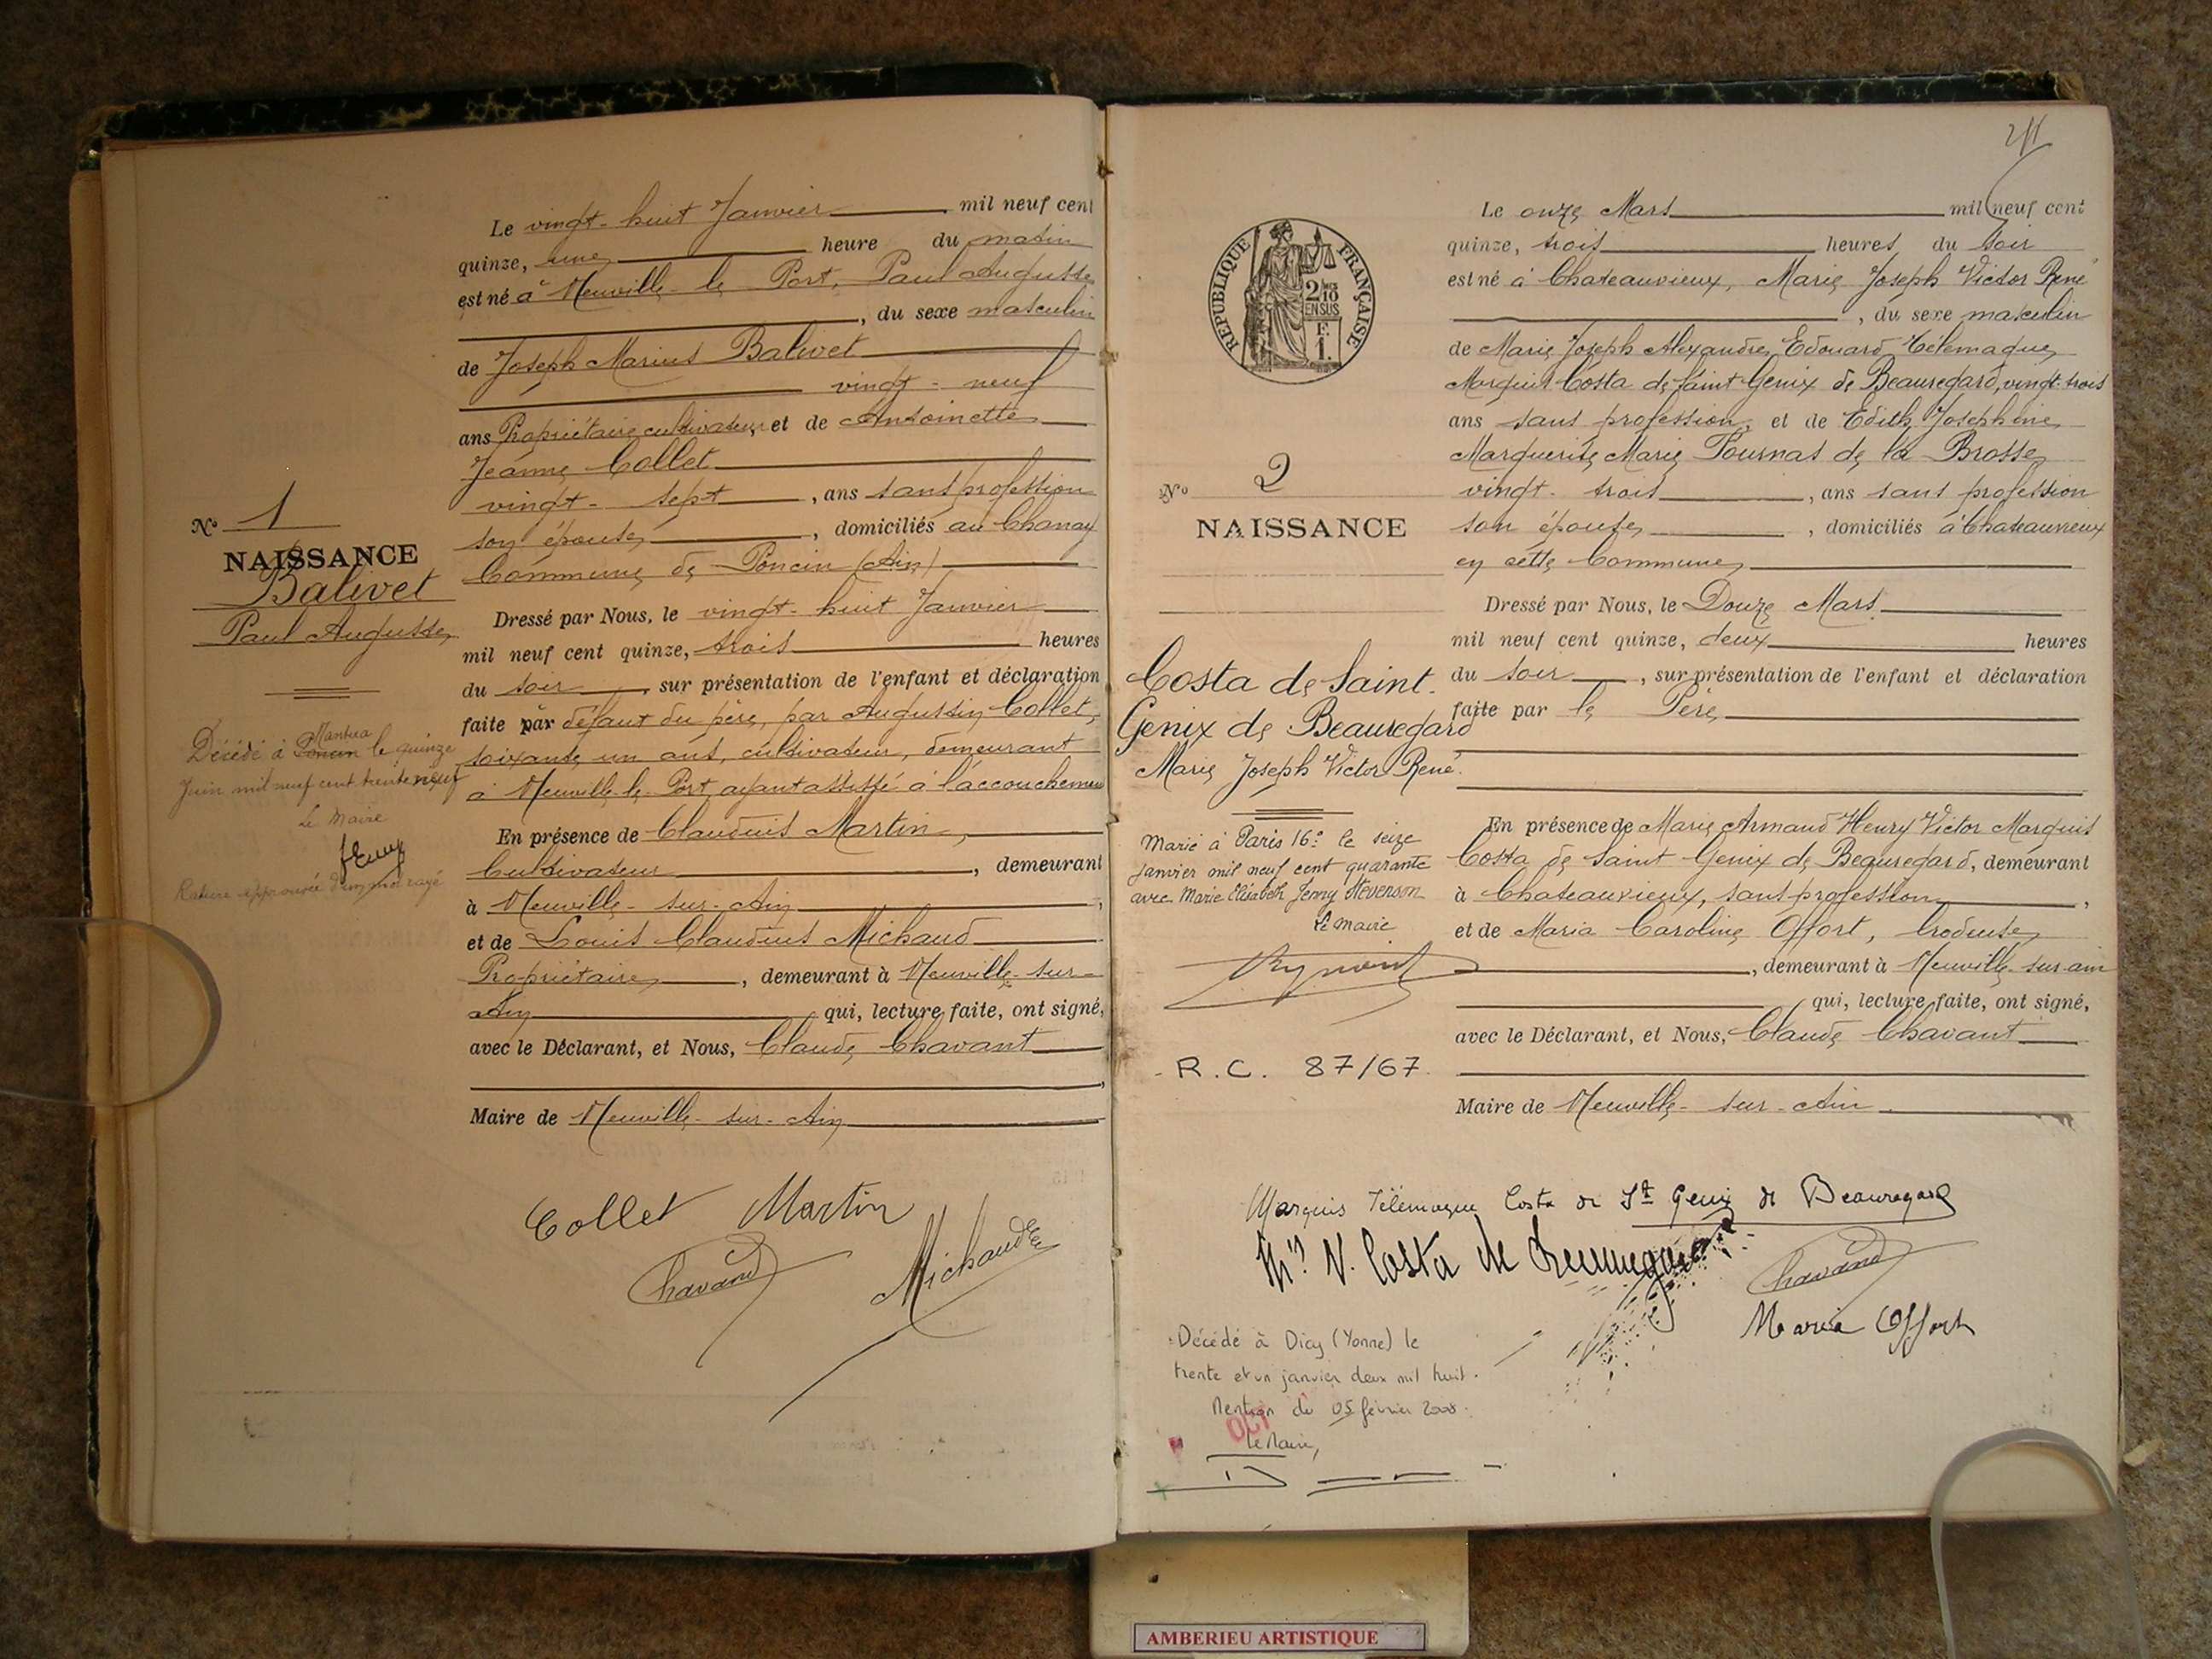 Le vingt-huit Janvier mil neuf cent
quinze, une heure du matin
est né à Neuville-le-Port, Paul Auguste
, du sexe masculin
de Joseph Marius Balivet
vingt-neuf
ans Propriétaire cultivateur, et de Antoinette
Jeanne Collet
vingt-sept, ans sans profession
son épouse, domiciliés au Chanay
Commune de Poncin (Ain)
Dressé par Nous, le vingt-huit Janvier
mil neuf cent quinze, trois heures
du soir, sur présentation de l'enfant et déclaration
faite par défaut du père, par Augustin Collet,
soixante un ans, cultivateur, demeurant
à Neuville-le-Port ayant assisté à l'accouchement
En présence de Claudius Martin,
Cultivateur, demeurant
à Neuville-sur-Ain,
et de Louis Claudius Michaud
Propriétaire, demeurant à Neuville-sur-
Ain qui, lecture faite, ont signé,
avec le Déclarant, et Nous, Claude Chavant
,
Maire de Neuville-sur-Ain
Collet Martin
Chavand Michaud
N° 1
NAISSANCE
Balivet
Paul Auguste
Mantua
Décédé à Poncin le quinze
Juin mil neuf cent trente neuf
Le Maire
Rature approuvée d'un mot rayé
RÉPUBLIQUE FRANÇAISE
2/10 EN SUS
F. 1.
N° 2
NAISSANCE
Costa de Saint-
Genix de Beauregard
Marie Joseph Victor René.
Marié à Paris 16e le seize
janvier mil neuf cent quarante
avec Marie Elisabeth Jenny Stevenson
Le Maire
R.C. 87/67
Le onze Mars mil neuf cent
quinze, trois heures du soir
est né à Chateauvieux, Marie Joseph Victor René
, du sexe masculin
de Marie Joseph Alexandre Edouard Télémaque
Marquis Costa de Saint Genix de Beauregard, vingt-trois
ans sans profession, et de Edith Josephine
Marguerite Marie Pournas de la Brosse
vingt-trois, ans sans profession
son épouse, domiciliés à Chateauvieux
en cette Commune
Dressé par Nous, le Douze Mars
mil neuf cent quinze, deux heures
du soir, sur présentation de l'enfant et déclaration
faite par le Père
En présence de Marie Armand Henry Victor Marquis
Costa de Saint Genix de Beauregard, demeurant
à Chateauvieux, sans profession,
et de Maria Caroline Offort, brodeuse
, demeurant à Neuville-sur-ain
qui, lecture faite, ont signé,
avec le Déclarant, et Nous, Claude Chavant
Maire de Neuville-sur-Ain
Marquis Télémaque Costa de St Genix de Beauregard
Mis V. Costa de Beauregard
Chavand
Maria Offort
Décédé à Dicy (Yonne) le
trente et un janvier deux mil huit.
Mention du 05 février 2008.
Le Maire,
AMBERIEU ARTISTIQUE